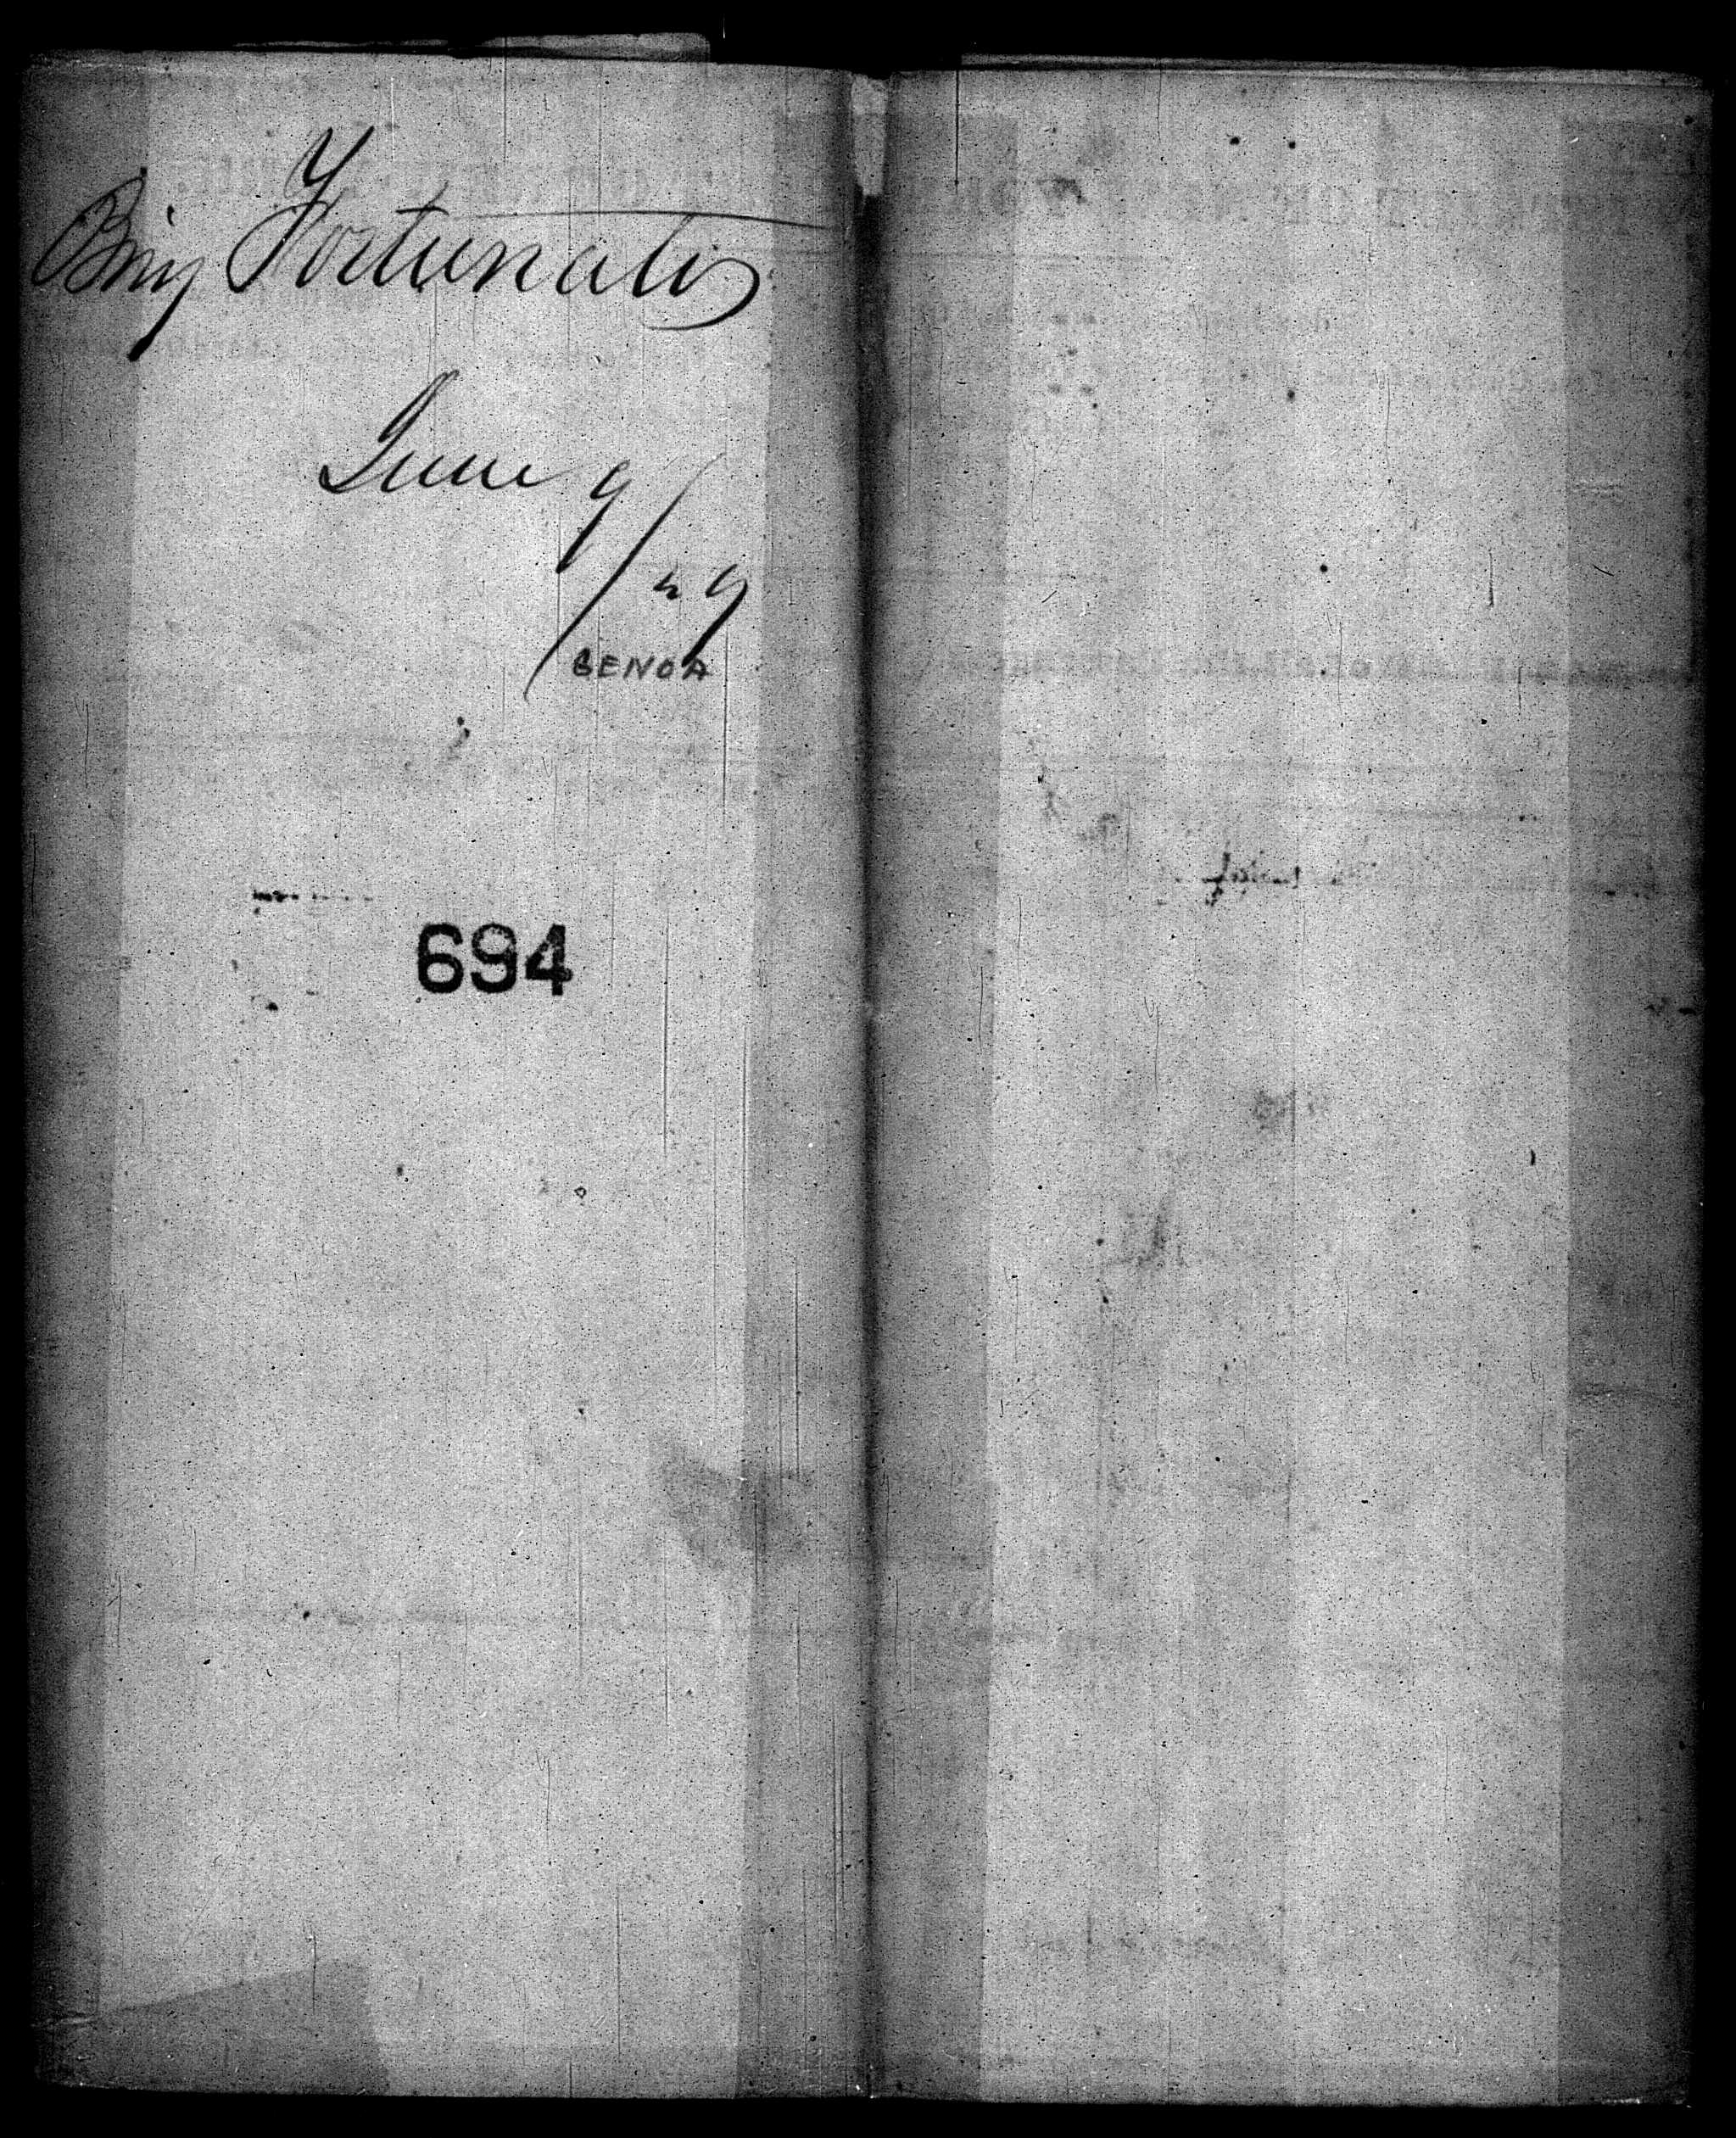 Brig Fortunato
June 9/49
GENOA
694